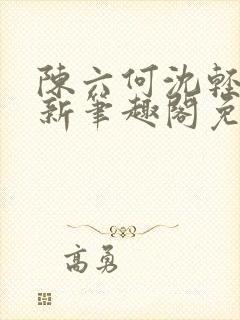 陳六何沈輕
新筆趣閣免
高勇